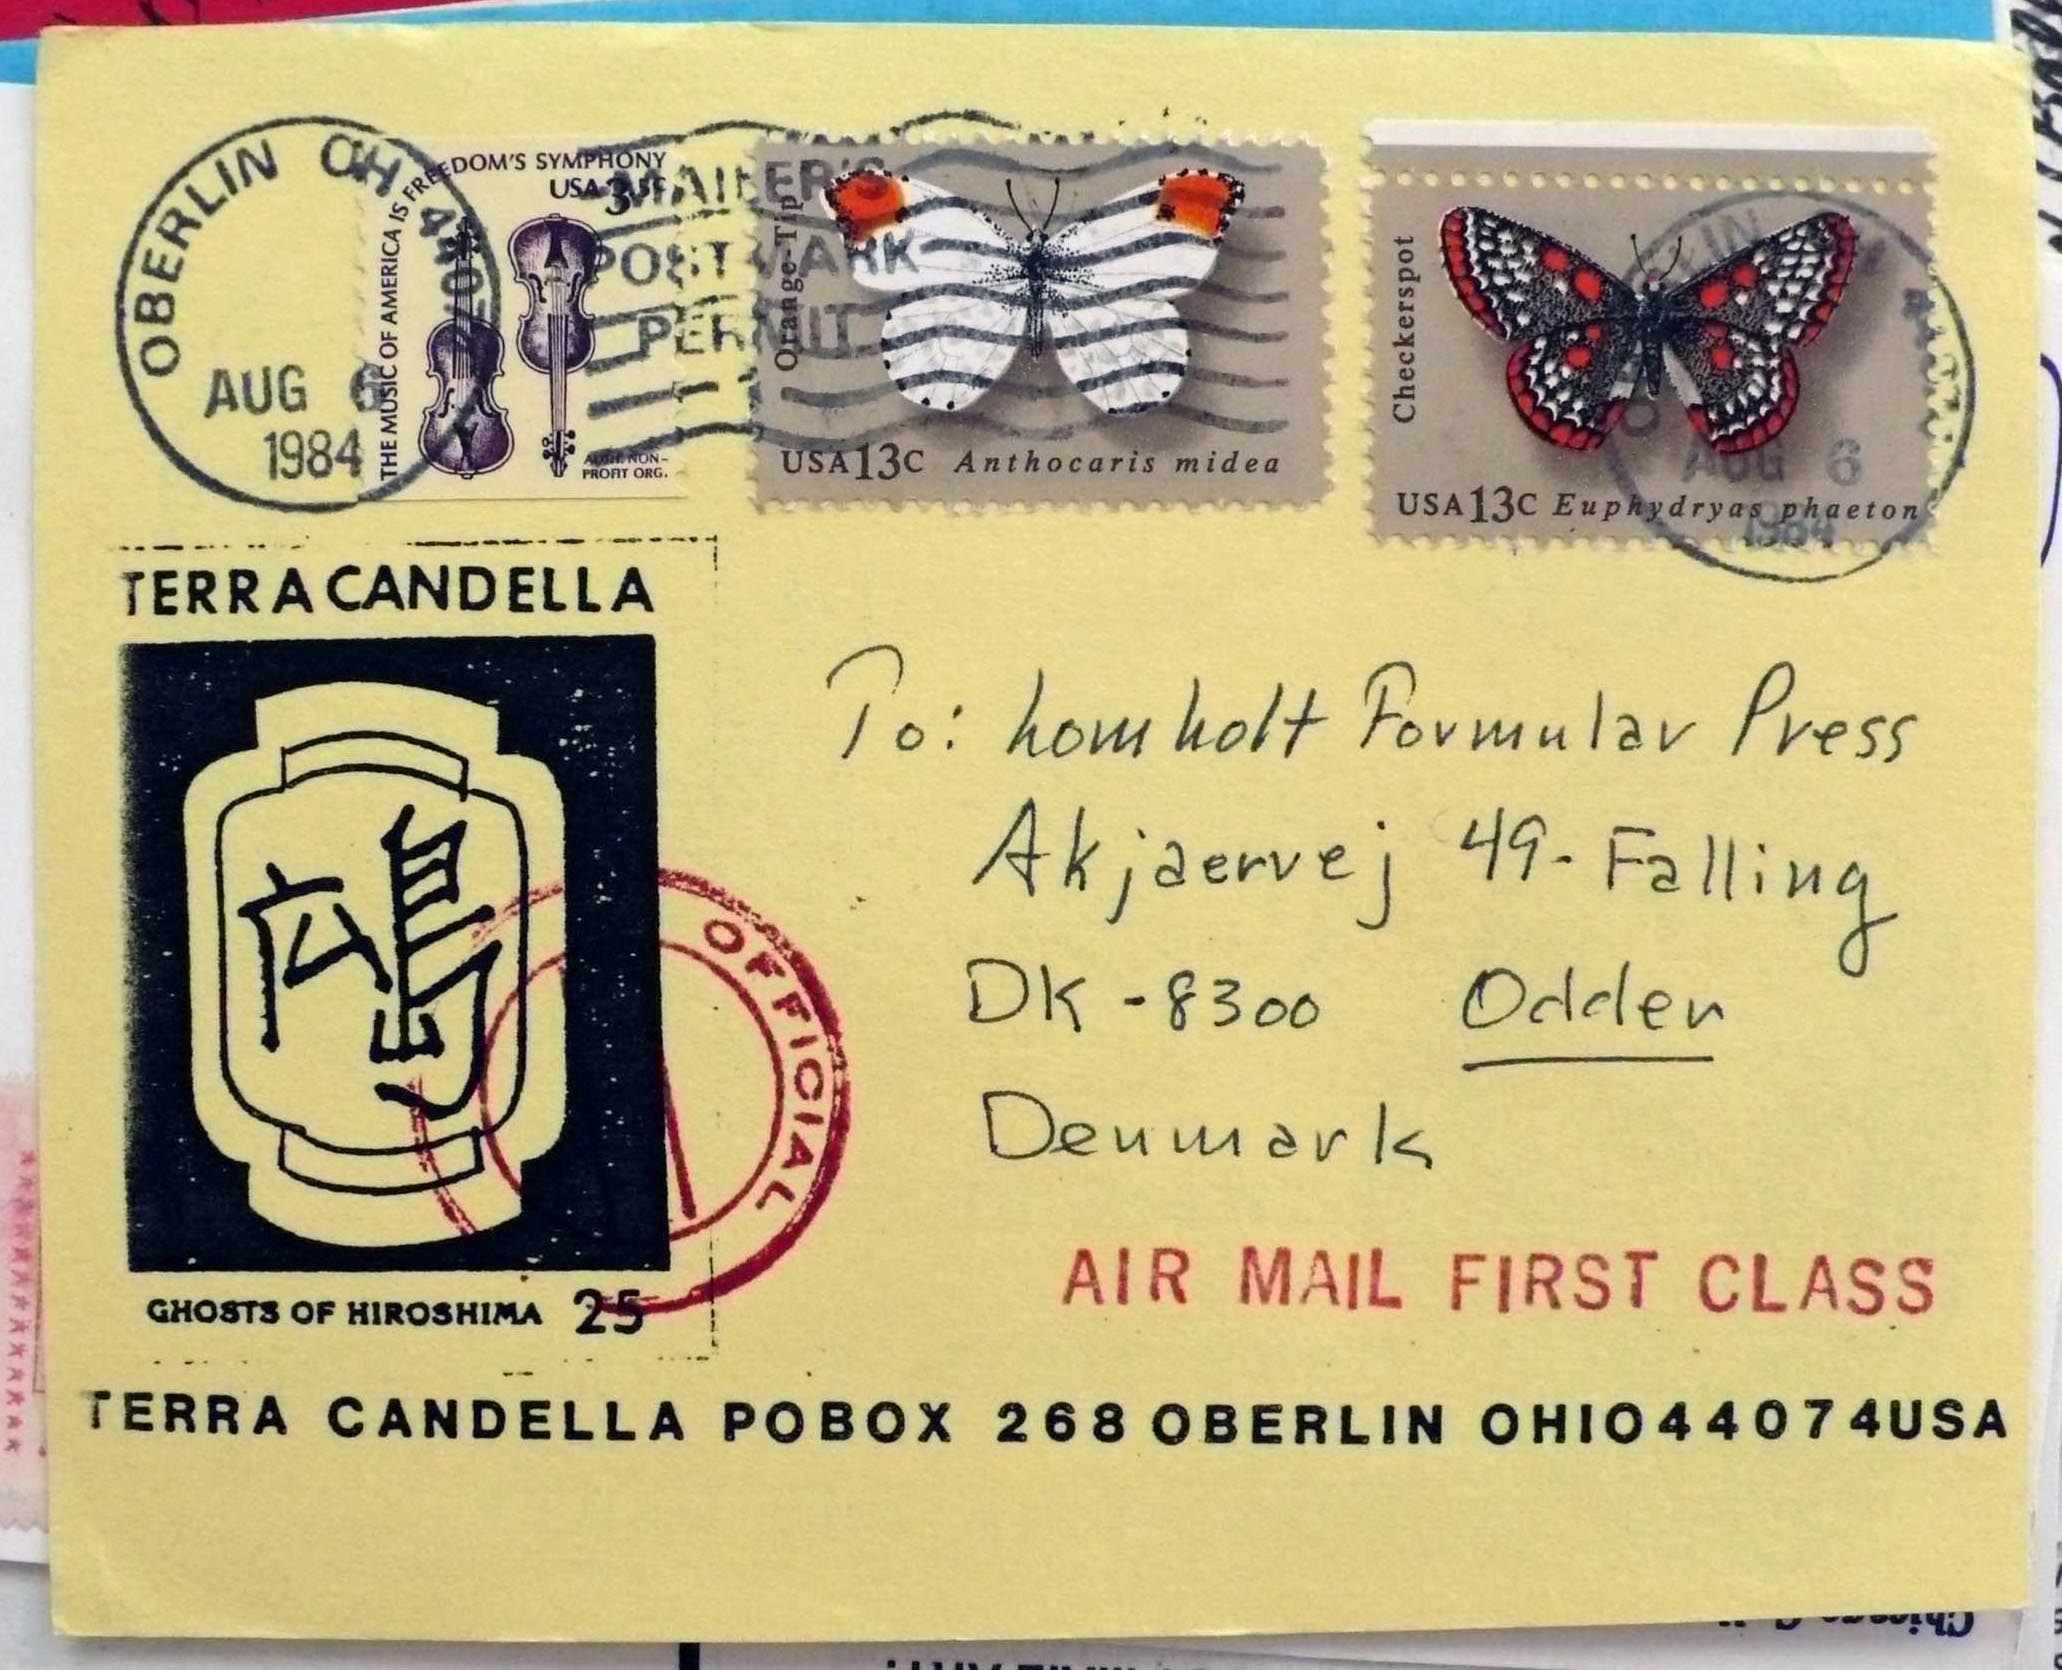 OBERLIN OH 44074
AUG 6
1984
THE MUSIC OF AMERICA IS FREEDOM'S SYMPHONY
USA 3.5c
AUTH. NON-
PROFIT ORG.
MAILER'S
POSTMARK
PERMIT
Orange-Tip
USA 13c Anthocaris midea
Checkerspot
USA 13c Euphydryas phaeton
AUG 6
1984
TERRA CANDELLA
広島
GHOSTS OF HIROSHIMA 25
OFFICIAL
To: Lomholt Formular Press
Akjaervej 49- Falling
DK-8300 Odder
Denmark
AIR MAIL FIRST CLASS
TERRA CANDELLA POBOX 268 OBERLIN OHIO 44074 USA